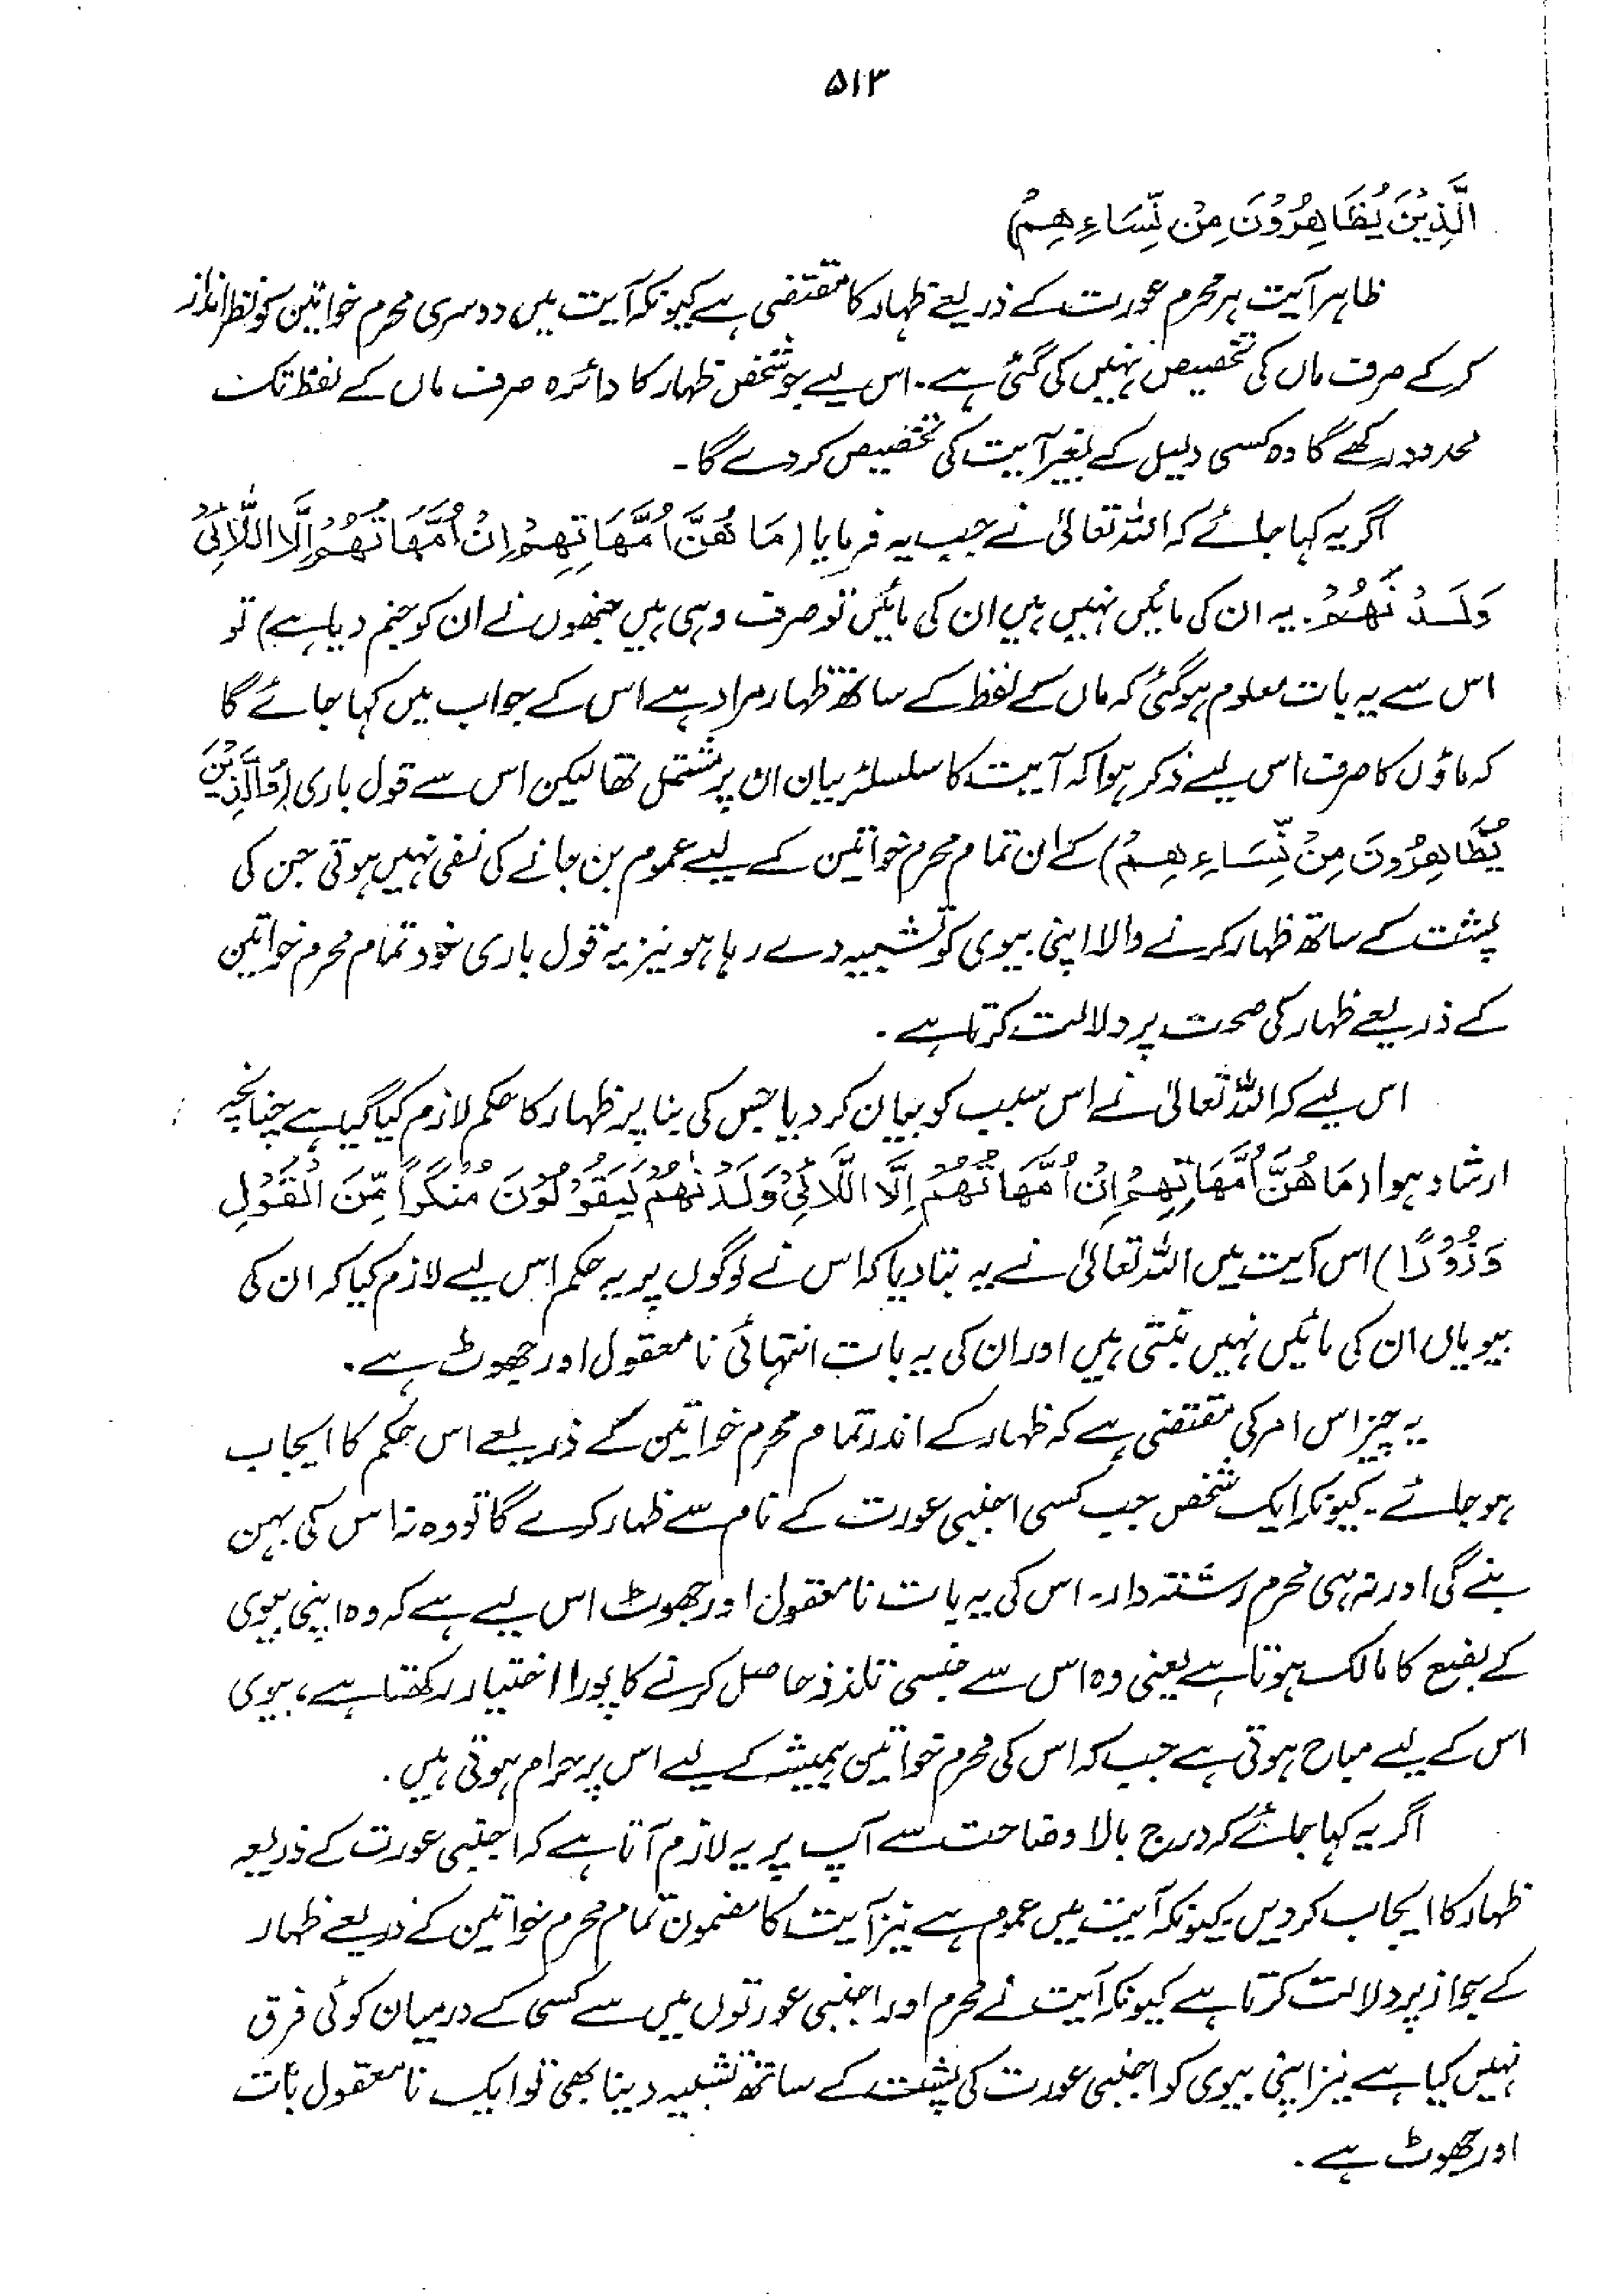 ۵۱۳
الَّذِيْنَ يُظَاهِرُوْنَ مِنْ نِّسَاءِهِمْ)
ظاہر آیت ہر محرم عورت کے ذریعے ظہار کا مقتضی ہے کیونکہ آیت میں دوسری محرم خواتین کو نظرانداز
کرکے صرف ماں کی تخصیص نہیں کی گئی ہے۔ اس لیے جو شخص ظہار کا دائرہ صرف ماں کے لفظ تک
محدود رکھے گا وہ کسی دلیل کے بغیر آیت کی تخصیص کر دے گا۔
اگر یہ کہا جائے کہ اللہ تعالیٰ نے جب یہ فرمایا (مَا هُنَّ اُمَّهَاتِهِمْ اِنْ اُمَّهَاتُهُمْ اِلَّا اللَّائِیْ
وَلَدْنَهُمْ۔ یہ ان کی مائیں نہیں ہیں ان کی مائیں تو صرف وہی ہیں جنھوں نے ان کو جنم دیا ہے) تو
اس سے یہ بات معلوم ہو گئی کہ ماں کے لفظ کے ساتھ ظہار مراد ہے اس کے جواب میں کہا جائے گا
کہ ماؤں کا صرف اس لیے ذکر ہوا کہ آیت کا سلسلۂ بیان ان پر مشتمل تھا لیکن اس سے قول باری (وَالَّذِيْنَ
يُظَاهِرُونَ مِنْ نِّسَاءِهِمْ) کے ان تمام محرم خواتین کے لیے عموم بن جانے کی نفی نہیں ہوتی جن کی
پشت کے ساتھ ظہار کرنے والا اپنی بیوی کو تشبیہ دے رہا ہو نیز یہ قول باری خود تمام محرم خواتین
کے ذریعے ظہار کی صحت پر دلالت کرتا ہے۔
اس لیے کہ اللہ تعالیٰ نے اس سبب کو بیان کر دیا جس کی بنا پر ظہار کا حکم لازم کیا گیا ہے چنانچہ
ارشاد ہوا (مَا هُنَّ اُمَّهَاتِهِمْ اِنْ اُمَّهَاتُهُمْ اِلَّا اللَّائِیْ وَلَدْنَهُمْ لَيَقُوْلُوْنَ مُنْكَرًا مِّنَ الْقَوْلِ
وَزُوْرًا) اس آیت میں اللہ تعالیٰ نے یہ بتا دیا کہ اس نے لوگوں پر یہ حکم اس لیے لازم کیا کہ ان کی
بیویاں ان کی مائیں نہیں بنتی ہیں اور ان کی یہ بات انتہائی نامعقول اور جھوٹ ہے۔
یہ چیز اس امر کی مقتضی ہے کہ ظہار کے اندر تمام محرم خواتین کے ذریعے اس حکم کا ایجاب
ہو جائے۔ کیونکہ ایک شخص جب کسی اجنبی عورت کے نام سے ظہار کرے گا تو وہ نہ اس کی بہن
بنے گی اور نہ ہی محرم رشتہ دار۔ اس کی یہ بات نامعقول اور جھوٹ اس لیے ہے کہ وہ اپنی بیوی
کے بضع کا مالک ہوتا ہے یعنی وہ اس سے جنسی تلذذ حاصل کرنے کا پورا اختیار رکھتا ہے، بیوی
اس کے لیے مباح ہوتی ہے جب کہ اس کی محرم خواتین ہمیشہ کے لیے اس پر حرام ہوتی ہیں۔
اگر یہ کہا جائے کہ درج بالا وضاحت سے آپ پر یہ لازم آتا ہے کہ اجنبی عورت کے ذریعہ
ظہار کا ایجاب کر دیں۔ کیونکہ آیت میں عموم ہے نیز آیت کا مضمون تمام محرم خواتین کے ذریعے ظہار
کے جواز پر دلالت کرتا ہے کیونکہ آیت نے محرم اور اجنبی عورتوں میں سے کسی کے درمیان کوئی فرق
نہیں کیا ہے نیز اپنی بیوی کو اجنبی عورت کی پشت کے ساتھ تشبیہ دینا بھی تو ایک نامعقول بات
اور جھوٹ ہے۔